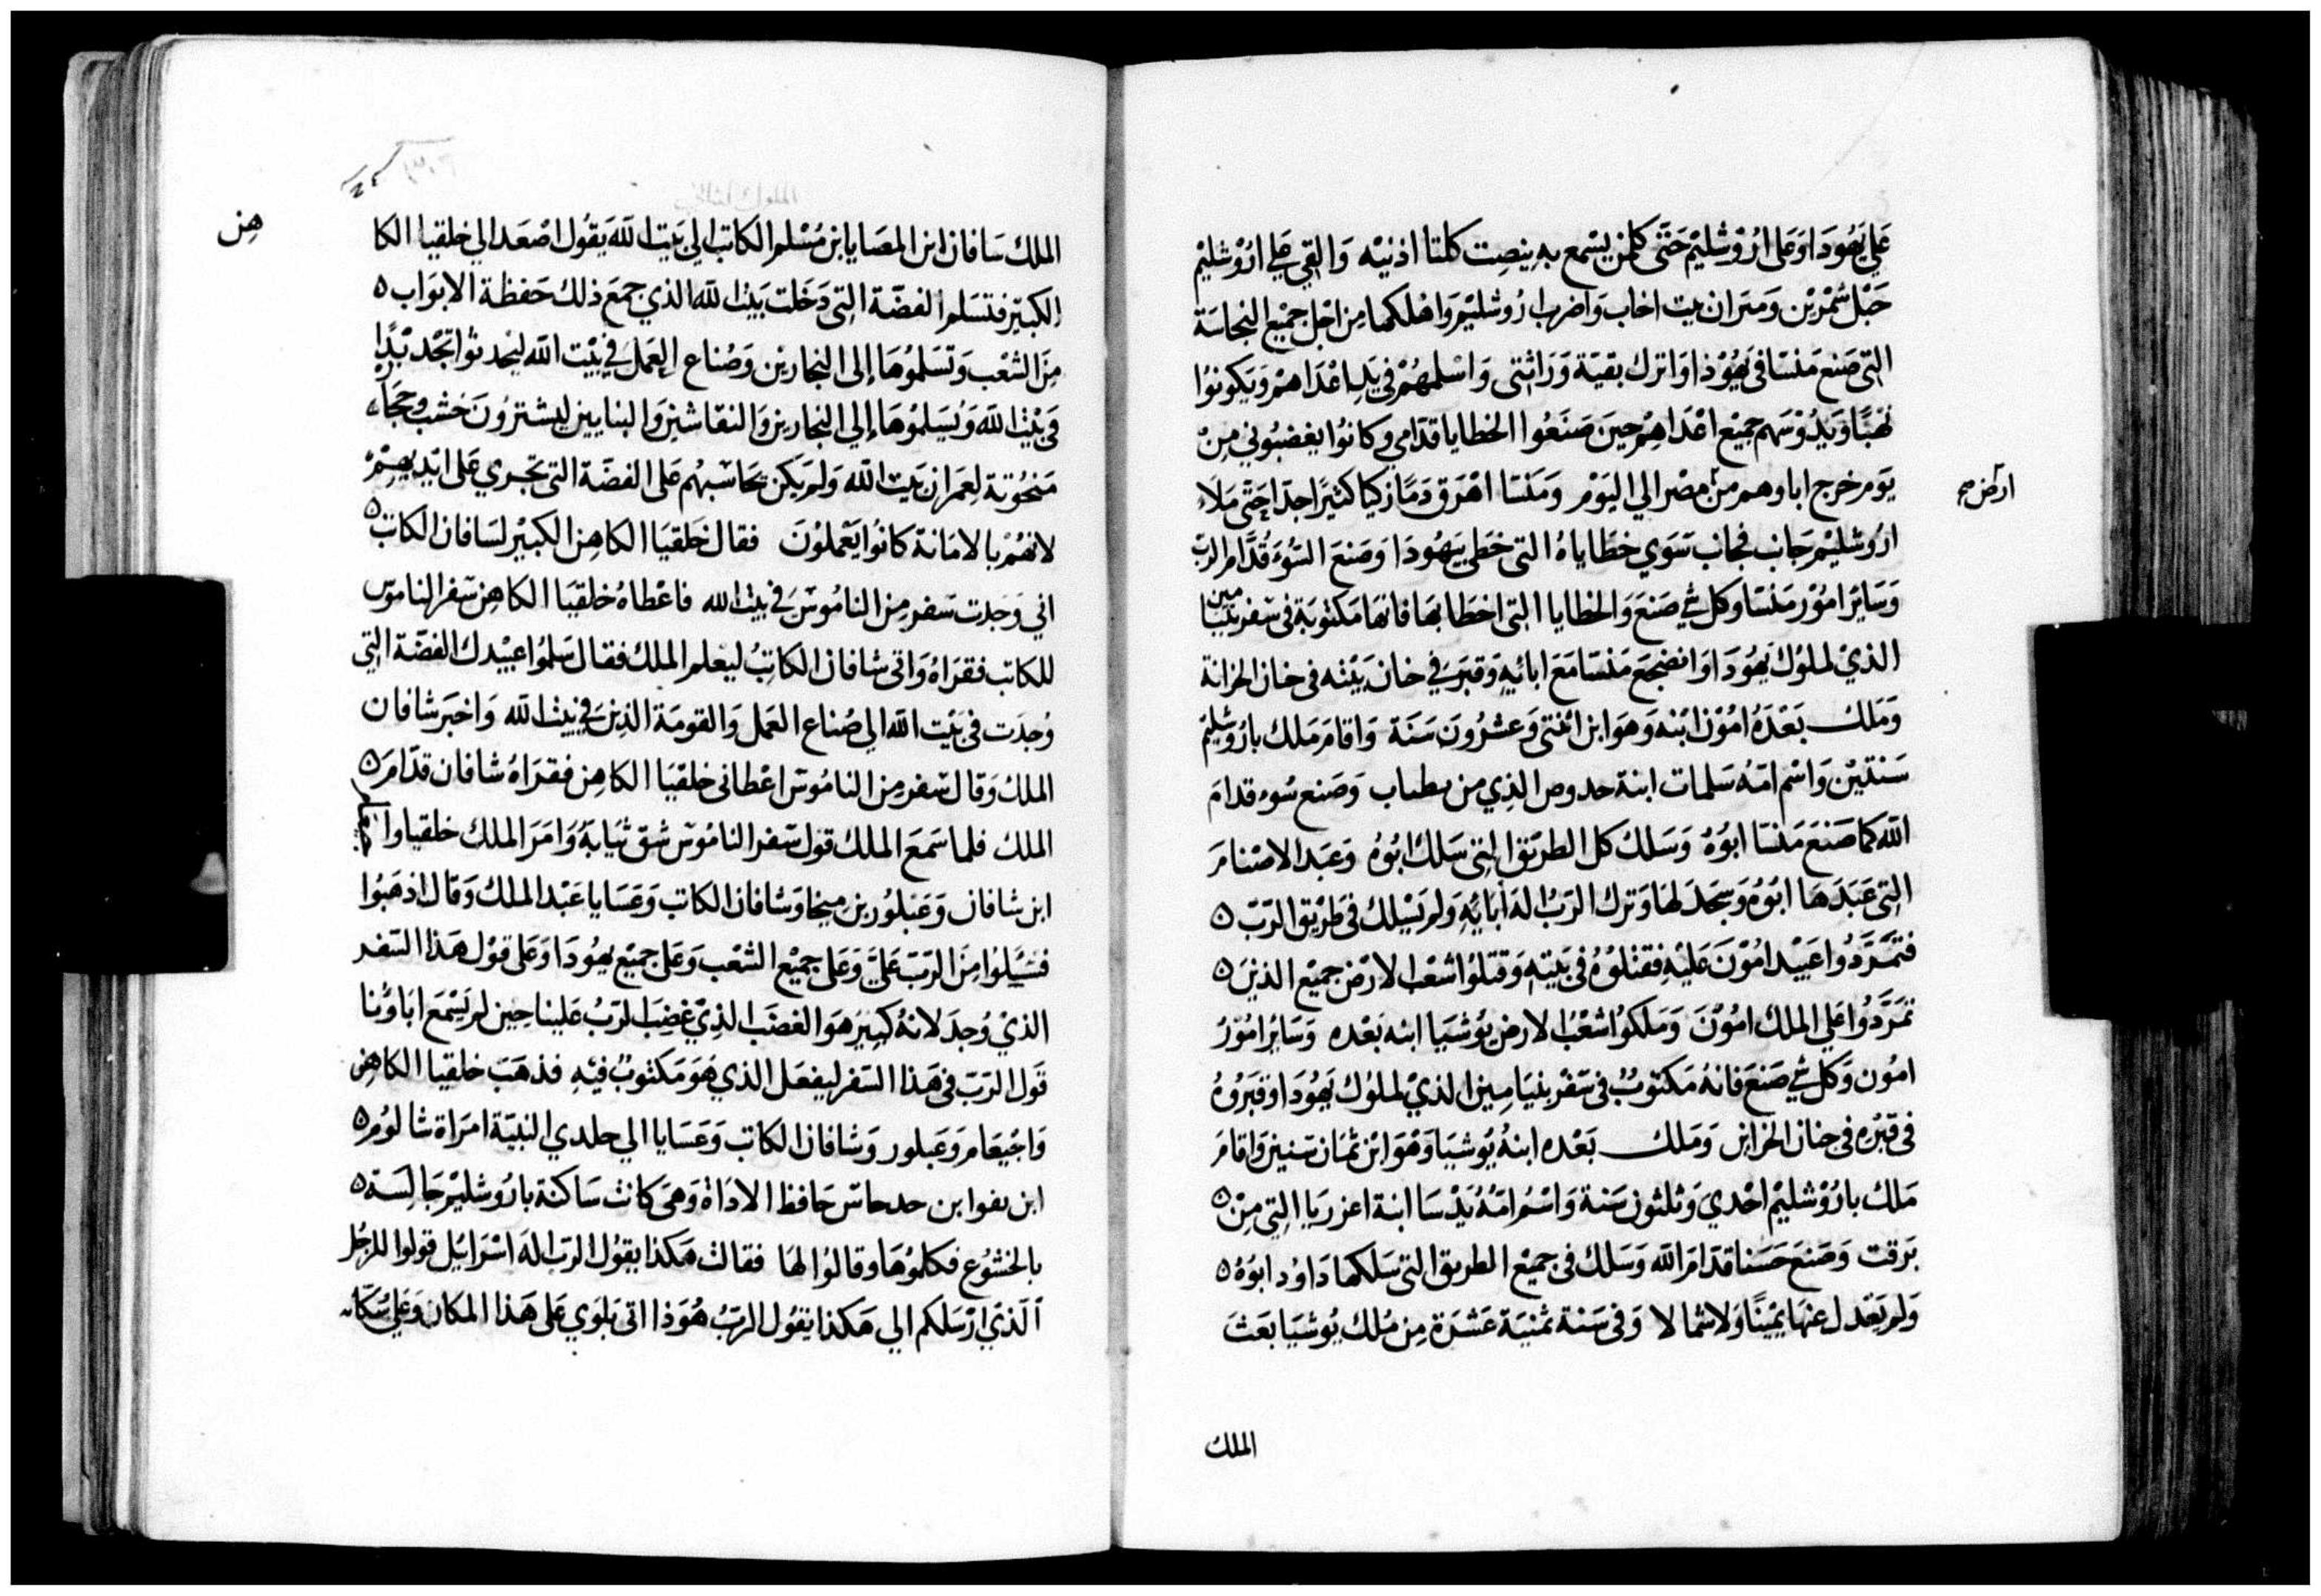 علي يَهُودَا وَعَلى ارُوْشليْم حَتّى كلمن يسْمع بهِ ينصِت كلتا اذنيْه وَالقي علي ارُوْشليْم
حَبْل شمْريْن وَميَران بيت اخاب وَاضرب ارُوشليْم وَاهْلكها مِن اجْل جميْع النجاسَة
التِى صَنع مَنسّا فى يَهُوْذا وَاترك بقيّة وَرَاثتى وَاسْلمهُمْ فى يَد اعْدَاهمْ وَيَكونوُا
نهْبًا وَيَدُوْسَهم جميْع اعْدَاهِمْ حينَ صَنَعُوا الخطايا قدّامي وكانوُا يغضبُوني مِنْ
يَومِ خرج اباوهم من مصْر الي اليَوْم وَمَنسّا اهْرَق دَمًا زكيا كثيْرًا جدّا حَتّى مَلاَء
ارُوشليْم جَانب فجانب سَوي خطاياهُ التى خطى يَهُودَا وَصَنعَ السُوَء قُدّام الرَبّ
وَسَائر امُوْر مَنسّا وكل شي صَنعَ وَالخطايا التى اخطا بهَا فانهَا مَكتوُبَة فى سَفر بنيَا
مين
الذيْ لملوُك يَهُودَا وَانضجعَ مَنسّا مَعَ ابائيهِ وَقبرَ في خان بَيْته فى خان الخزانة
وَمَلك بَعْدَهُ امُوْن ابْنه وَهوَ ابن اثنتى وَعشرُونَ سَنَة وَاقامَ مَلك بارُوشليْم
سَنتيْن وَاسْم امّهُ سَلمات ابنة حدوص الذِي من بطباب وَصَنع سُوء قدامَ
اللّه كما صَنعَ مَنسّا ابوُهُ وَسَلك كل الطريق التى سَلك ابُوهُ وَعبَد الاصْنامَ
التِى عَبَدَهَا ابَوُه وَسَجَدَ لهَا وَترك الرَبُّ اله ابائِهِ وَلم يَسْلك فى طَرْيق الرَبّ ٥
فتمَرَّدُوا عَبيْد امُوْنَ عَليْهِ فقتلوُهُ فى بَيتهِ وَقتلوُا شعْب الارْض جميْع الذينَ ٥
تمَرّدَوُا عَلي الملك امُوْنَ وَمَلكوُا شعْبُ الارض يُوشيَا ابنه بَعْده وَسَائر امُوْرُ
امُون وَكل شي صَنعَ فانهُ مَكتوُبٌ فى سَفْر بنيَامِين الذيْ لملوُك يَهُودَا وقبَرُوهُ
فى قبْره فى جنان الخزاين وَمَلك بَعْده ابنهُ يُوشيَا وَهْوَ ابْن ثمَان سَنين وَاقامَ
مَلك بارُوْشليْم احْدي وَثلثون سَنة وَاسْمُ امّهُ يَدْسَا ابنة اعزريَا التِى مِنْ ٥
بَرقت وَصَنعَ حَسَنا قدّامَ اللّه وَسَلك فى جميْع الطريق التى سَلكها دَاوُد ابوُهُ ٥
وَلم يَعْدل عنهَا يمْينًا وَلا شمالا وَفى سَنة ثمنيَة عَشرَة مِن مُلك يُوشيَا بَعَثَ
ارض صح
الملك
الملك سَافان ابن المصَايا بن مُسْلم الكاتب الي بَيت اللّه يَقُول اصْعَد الي خلقيا الكا
هِن
الكبيْر فتسَلم الفضّة التِى دَخَلت بَيْت اللّه الذي جمعَ ذلك حَفظة الابوَاب ٥
مِنَ الشعْب وَتسَلموُهَا إلى النجارين وَصُناع العَمل في بيْت اللّه ليُحدثوا تجْديْدًا
فى بيْت اللّه وَيُسَلموُهَا إلي النجارين وَالنقاشين وَالبنايين ليشترُونَ خَشب وحجَا
مَنحُوتة لعمران بَيت اللّه وَلم يَكن يحَاسبُهم عَلى الفضّة التى تجري عَلى ايَديهمْ
لانهُمْ بالامَانة كانوُا يَعْملوْنَ فقال خَلقيَا الكاهِن الكبيْر لسَافان الكاتب ٥
اني وَجَدت سَفر مِن النامُوسَ في بيْت الله فاعْطاهُ خلقيَا الكاهِن سَفر الناموس
للكاتب فقرَاهُ وَاتى شافان الكاتبُ ليعْلم الملك فقال سَلموُا عبيْدك الفضّة التِي
وُجدَت فى بَيْت اللّه الي صُناع العَمل وَالقومَة الذينَ في بيْت اللّه وَاخبَرَ شافان
الملك وَقال سَفر من النامُوسَ اعْطانى خلقيَا الكاهِن فقرَاهُ شافان قدّامَ ٥
الملك فلما سَمعَ الملك قول سَفر النامُوس شق ثيَابهُ وَامَرَ الملك خلقيا وا
ابن شافان وَعَبلوُر بن ميخا وَشافان الكاتب وَعَسَايا عَبْد الملك وَقال اذهَبُوا
فسَلوُا مِنَ الرَبّ عَليَّ وَعَلي جميْع الشعْب وَعَلي جميْع يَهُودَا وَعَلى قوْل هَذا السَفر
الذيْ وُجدَ لانهُ كبيْر هوَ الغضَب الذِيْ غضِبَ الرَبُّ عَلينا حِين لم يَسْمَع ابَاؤنا
قَول الرَبّ فى هَذا السَفر ليفعَل الذي هُوَ مَكتوُبٌ فيْهِ فذهَبَ خلقيا الكاهن
وَاحْيعَام وَعَبلور وَشافان الكاتب وَعَسَايا الي حلدي النبيّة امرَاة شالومُ ٥
ابن يفوا بن حدحاس حَافظ الادَاة وَهىَ كانت سَاكنَة بارُوشليْم جَالسَة ٥
بالخشوُع فكلموُهَا وقالوُا لهَا فقالت هَكذا يقوُل الرَبّ اله اسْرَائيل قولوا للرَجُل
الّذيْ ارْسَلكم الي هَكذا يَقوُل الرَبُّ هُوَذا اتى بَلوَي عَلى هَذا المكان وَعَلي سُكانه